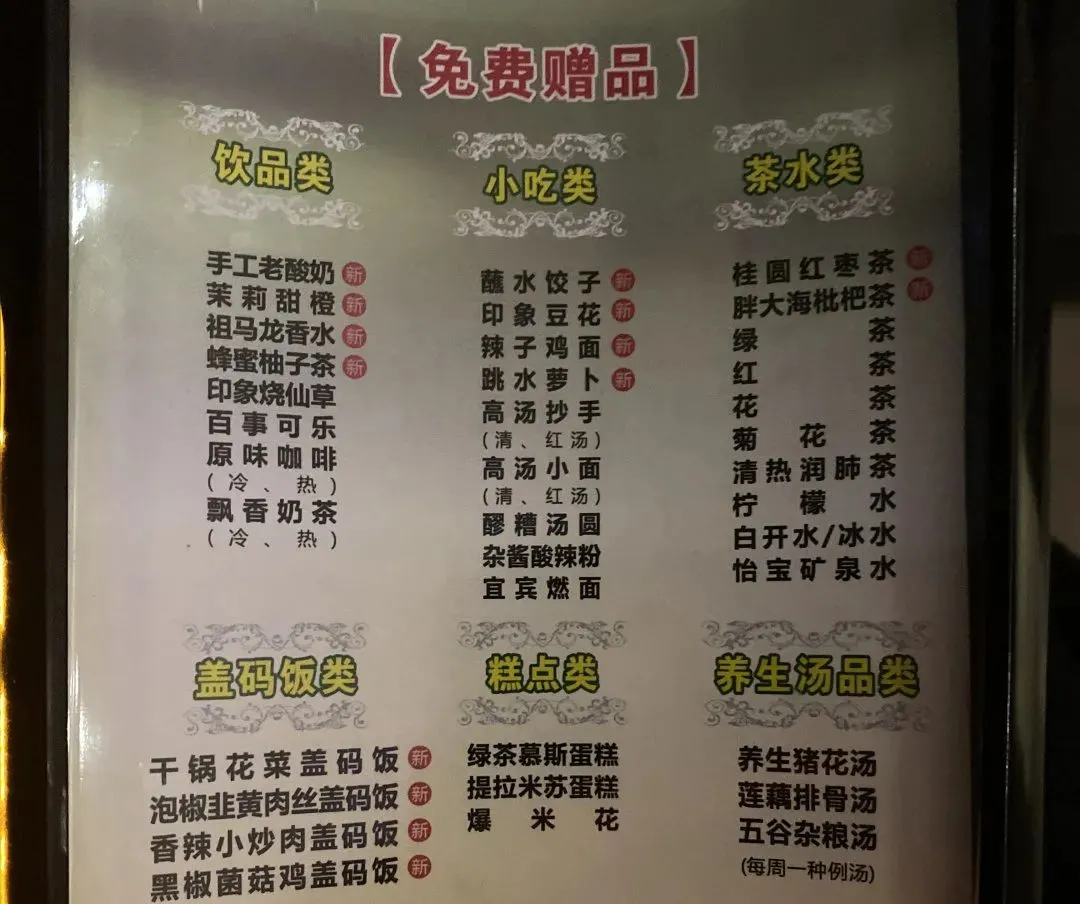 【免费赠品】
饮品类
手工老酸奶 新
茉莉甜橙 新
祖马龙香水 新
蜂蜜柚子茶 新
印象烧仙草
百事可乐
原味咖啡
(冷、热)
飘香奶茶
(冷、热)
小吃类
蘸水饺子 新
印象豆花 新
辣子鸡面 新
跳水萝卜 新
高汤抄手
(清、红汤)
高汤小面
(清、红汤)
醪糟汤圆
杂酱酸辣粉
宜宾燃面
茶水类
桂圆红枣茶 新
胖大海枇杷茶 新
绿茶
红茶
花茶
菊花茶
清热润肺茶
柠檬水
白开水/冰水
怡宝矿泉水
盖码饭类
干锅花菜盖码饭 新
泡椒韭黄肉丝盖码饭 新
香辣小炒肉盖码饭 新
黑椒菌菇鸡盖码饭 新
糕点类
绿茶慕斯蛋糕
提拉米苏蛋糕
爆米花
养生汤品类
养生猪花汤
莲藕排骨汤
五谷杂粮汤
(每周一种例汤)